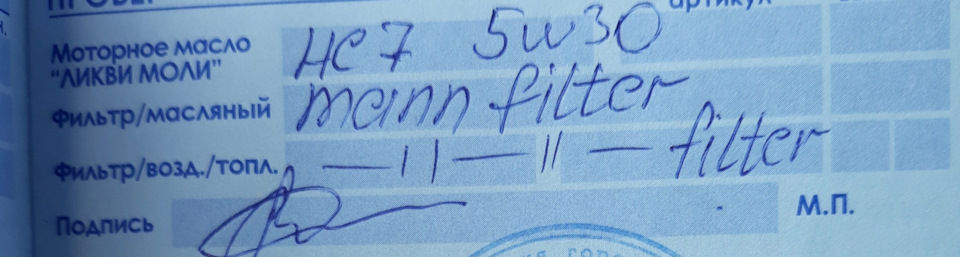 артикул
Моторное масло
"ЛИКВИ МОЛИ" HC7 5w30
Фильтр/масляный mann filter
Фильтр/возд./топл. — 11 — 11 — filter
Подпись М.П.